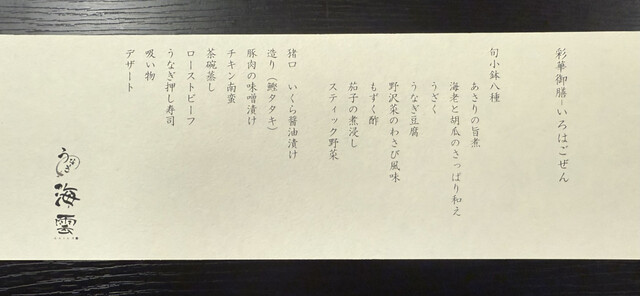 彩華御膳−いろはごぜん
旬小鉢八種
あさりの旨煮
海老と胡瓜のさっぱり和え
うざく
うなぎ豆腐
野沢菜のわさび風味
もずく酢
茄子の煮浸し
スティック野菜
猪口 いくら醤油漬け
造り（鰹タタキ）
豚肉の味噌漬け
チキン南蛮
茶碗蒸し
ローストビーフ
うなぎ押し寿司
吸い物
デザート
うなぎ
海雲